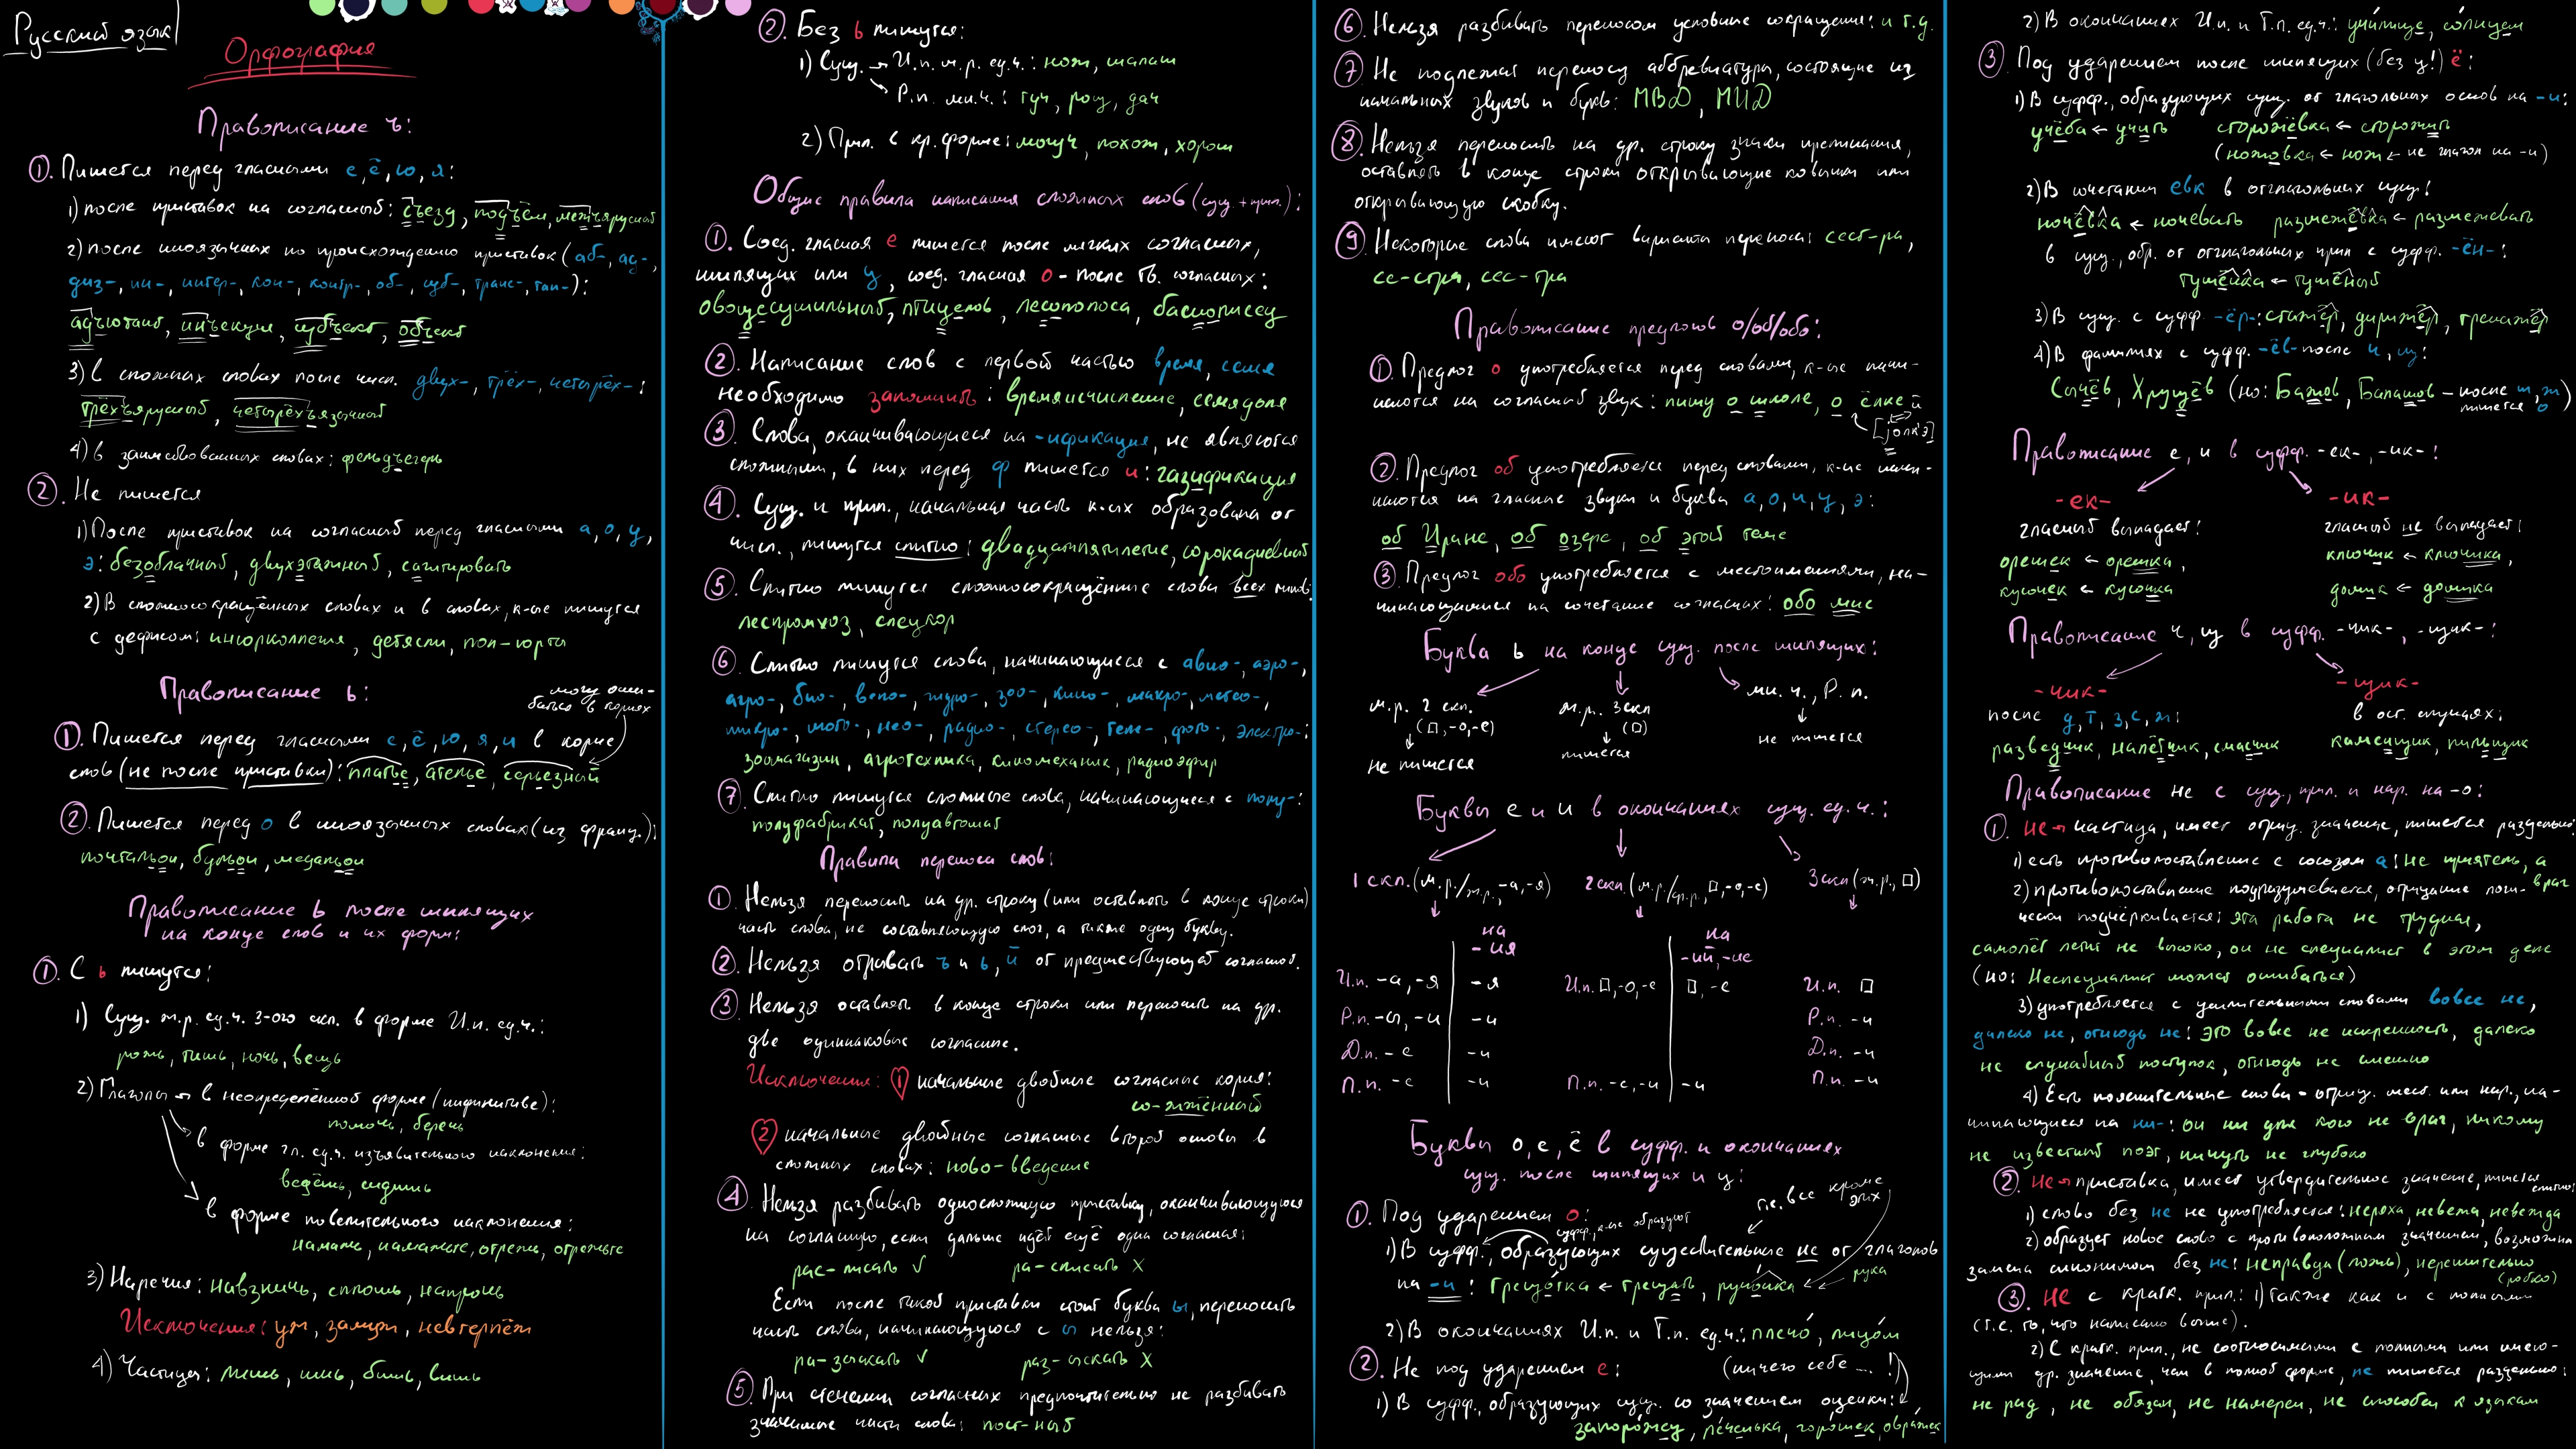 Русский язык
Орфография
Правописание ъ:
1. Пишется перед гласными е, ё, ю, я:
1) после приставок на согласный: съезд, подъём, межъярусный
2) после иноязычных по происхождению приставок (аб-, ад-,
диз-, ин-, интер-, кон-, контр-, об-, суб-, транс-, пан-):
адъютант, инъекция, субъект, объект
3) в сложных словах после числ. двух-, трёх-, четырёх-:
трёхъярусный, четырёхъязычный
4) в заимствованных словах: фельдъегерь
2. Не пишется
1) После приставок на согласный перед гласными а, о, у,
э: безоблачный, двухэтажный, сагитировать
2) В сложносокращённых словах и в словах, к-ые пишутся
с дефисом: иняколлегия, детясли, поп-юрты
Правописание ь:
могу оши-
баться в корнях
1. Пишется перед гласными е, ё, ю, я, и в корне
слов (не после приставки): платье, ателье, серьезный
2. Пишется перед о в иноязычных словах (из франц.):
почтальон, бульон, медальон
Правописание ь после шипящих
на конце слов и их форм:
1. С ь пишутся:
1) Сущ. ж.р. ед.ч. 3-ого скл. в форме И.п. ед.ч.:
рожь, тишь, ночь, вещь
2) Глаголы → в неопределённой форме (инфинитиве):
помочь, беречь
в форме гл. ед.ч. изъявительного наклонения:
ведёшь, сидишь
в форме повелительного наклонения:
намажь, намажьте, отрежь, отрежьте
3) Наречия: навзничь, сплошь, напрочь
Исключения: уж, замуж, невтерпёж
4) Частицы: лишь, ишь, бишь, вишь
2. Без ь пишутся:
1) Сущ. → И.п. м.р. ед.ч.: нож, шалаш
Р.п. мн.ч.: туч, рощ, дач
2) Прил. в кр. форме: могуч, похож, хорош
Общие правила написания сложных слов (сущ. + прил.):
1. Соед. гласная е пишется после мягких согласных,
шипящих или ц, соед. гласная о - после тв. согласных:
овощесушильный, птицелов, лесополоса, баснописец
2. Написание слов с первой частью время, семя
необходимо запомнить: времяисчисление, семядоля
3. Слова, оканчивающиеся на -ификация, не являются
сложными, в них перед ф пишется и: газификация
4. Сущ. и прил., начальная часть к-ых образована от
числ., пишутся слитно: двадцатипятилетие, сорокадневный
5. Слитно пишутся сложносокращённые слова всех типов:
леспромхоз, спецкор
6. Слитно пишутся слова, начинающиеся с авиа-, аэро-,
агро-, био-, вело-, гидро-, зоо-, кино-, макро-, метео-,
микро-, мото-, нео-, радио-, стерео-, теле-, фото-, электро-:
зоомагазин, агротехника, киномеханик, радиоэфир
7. Слитно пишутся сложные слова, начинающиеся с полу-:
полуфабрикат, полуавтомат
Правила переноса слов:
1. Нельзя переносить на др. строку (или оставлять в конце строки)
часть слова, не составляющую слог, а также одну букву.
2. Нельзя отрывать ъ и ь, й от предшествующей согласной.
3. Нельзя оставлять в конце строки или переносить на др.
две одинаковые согласные.
Исключения: 1 начальные двойные согласные корня:
со-жжённый
2 начальные двойные согласные второй основы в
сложных словах: ново-введение
4. Нельзя разбивать односложную приставку, оканчивающуюся
на согласную, если дальше идёт ещё одна согласная:
рас-писать √ ра-списать X
Если после такой приставки стоит буква ы, переносить
часть слова, начинающуюся с ы нельзя:
ра-зыскать √ раз-ыскать X
5. При стечении согласных предпочтительно не разбивать
значимые части слова: пост-ный
6. Нельзя разбивать переносом условные сокращения: и т.д.
7. Не подлежат переносу аббревиатуры, состоящие из
начальных звуков и букв: МВД, МИД
8. Нельзя переносить на др. строку знаки препинания,
оставлять в конце строки открывающие кавычки или
открывающую скобку.
9. Некоторые слова имеют варианты переноса: сест-ра,
се-стра, сес-тра
Правописание предлогов о/об/обо:
1. Предлог о употребляется перед словами, к-ые начи-
наются на согласный звук: пишу о школе, о ёлке
[jолк'э]
2. Предлог об употребляется перед словами, к-ые начи-
наются на гласные звуки и буквы а, о, и, у, э:
об Иране, об озере, об этой теме
3. Предлог обо употребляется с местоимениями, на-
чинающимися на сочетание согласных: обо мне
Буква ь на конце сущ. после шипящих:
м.р. 2 скл. (□, -о, -е) ж.р. 3 скл (□) мн.ч., Р.п.
не пишется пишется не пишется
Буквы е и и в окончаниях сущ. ед.ч.:
1 скл. (м.р./ж.р., -а, -я) 2 скл. (м.р./ср.р., □, -о, -е) 3 скл (ж.р., □)
на -ия на -ий, -ие
И.п. -а, -я -я И.п. □, -о, -е □, -е И.п. □
Р.п. -ы, -и -и Р.п. -и
Д.п. -е -и Д.п. -и
П.п. -е -и П.п. -е, -и -и П.п. -и
Буквы о, е, ё в суфф. и окончаниях
сущ. после шипящих и ц:
т.е. все кроме этих
1. Под ударением о:
суфф., к-ые образуют
1) В суфф., образующих существительные не от глаголов
на -и: трещотка ← трещать, ручонка ← рука
2) В окончаниях И.п. и Т.п. ед.ч.: плечо́, лицо́м
2. Не под ударением е: (ничего себе ... !)
1) В суфф., образующих сущ. со значением оценки:
запоро́жец, пе́ченька, горо́шек, овра́жек
2) В окончаниях И.п. и Т.п. ед.ч.: учи́лище, со́лнцем
3. Под ударением после шипящих (без ц!) ё:
1) В суфф., образующих сущ. от глагольных основ на -и:
учёба ← учить сторожёвка ← сторожить
(ножовка ← нож ← не глагол на -и)
2) В сочетании евк в отглагольных сущ:
ночёвка ← ночевать размежёвка ← размежевать
в сущ., обр. от отглагольных прил с суфф. -ён-:
тушёнка ← тушёный
3) В сущ. с суфф. -ёр-: стажёр, дирижёр, тренажёр
4) В фамилиях с суфф. -ёв- после ч, щ:
Сычёв, Хрущёв (но: Бажов, Балашов - после ш, ж пишется о)
Правописание е, и в суфф. -ек-, -ик-:
-ек- -ик-
гласный выпадает: гласный не выпадает:
орешек ← орешка, ключик ← ключика,
кусочек ← кусочка домик ← домика
Правописание ч, щ в суфф. -чик-, -щик-:
-чик- -щик-
после д, т, з, с, ж: в ост. случаях:
разведчик, налётчик, смазчик каменщик, пильщик
Правописание не с сущ., прил. и нар. на -о:
1. не → частица, имеет отриц. значение, пишется раздельно:
1) есть противопоставление с союзом а: не приятель, а враг
2) противопоставление подразумевается, отрицание логи-
чески подчёркивается: эта работа не трудная,
самолёт летит не высоко, он не специалист в этом деле
(но: Неспециалист может ошибаться)
3) употребляется с усилительными словами вовсе не,
далеко не, отнюдь не: это вовсе не искренность, далеко
не случайный поступок, отнюдь не смешно
4) Есть пояснительные слова - отриц. мест. или нар., на-
чинающиеся на ни-: он ни для кого не враг, никому
не известный поэт, ничуть не глубоко
2. не → приставка, имеет утвердительное значение, пишется слитно:
1) слово без не не употребляется: неряха, невежа, невежда
2) образует новое слово с противоположным значением, возможна
замена синонимом без не: неправда (ложь), нерешительно (робко)
3. не с кратк. прил.: 1) также как и с полными
(т.е. то, что написано выше).
2) С кратк. прил., не соотносимыми с полными или имею-
щими др. значение, чем в полной форме, не пишется раздельно:
не рад, не обязан, не намерен, не способен к языкам